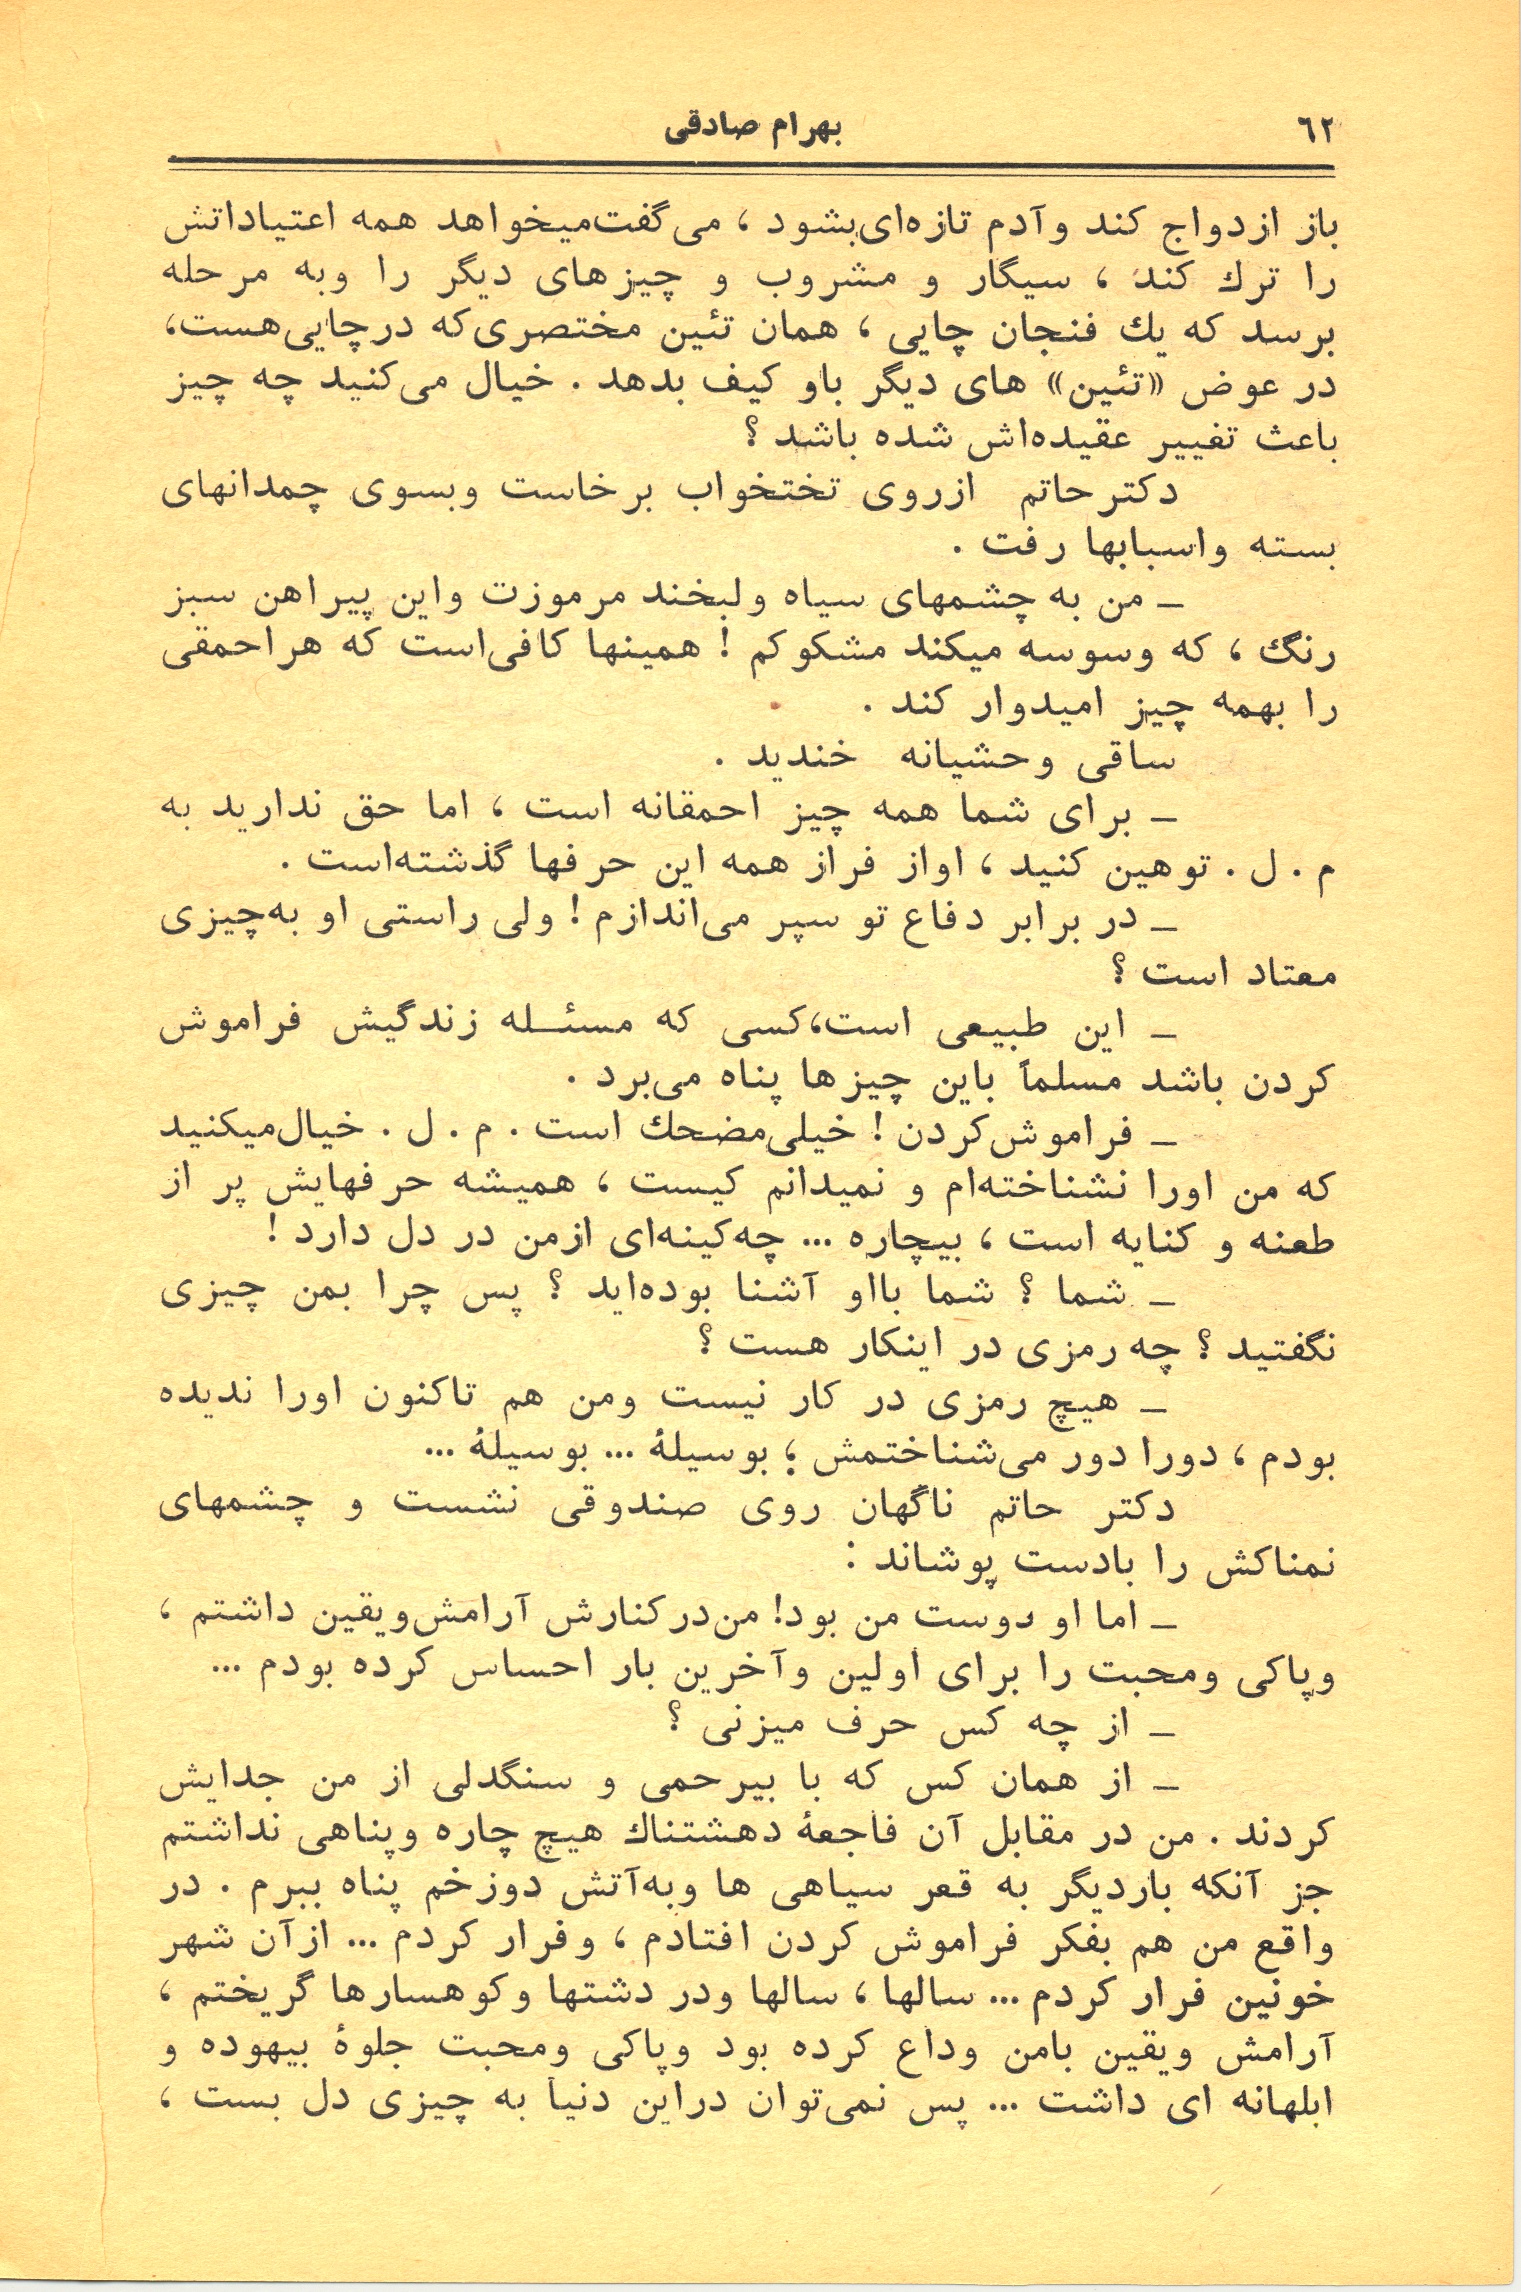 ۶۲
بهرام صادقی
باز ازدواج کند وآدم تازه‌ای‌بشود ، می‌گفت‌میخواهد همه اعتیاداتش
را ترك کند ، سیگار و مشروب و چیزهای دیگر را وبه مرحله
برسد که یك فنجان چایی ، همان تئین مختصری‌که درچایی‌هست،
در عوض «تئین» های دیگر باو کیف بدهد . خیال می‌کنید چه چیز
باعث تغییر عقیده‌اش شده باشد ؟
دکترحاتم ازروی تختخواب برخاست وبسوی چمدانهای
بسته واسبابها رفت .
ــ من به چشمهای سیاه ولبخند مرموزت واین پیراهن سبز
رنگ ، که وسوسه میکند مشکوکم ! همینها کافی‌است که هراحمقی
را بهمه چیز امیدوار کند .
ساقی وحشیانه خندید .
ــ برای شما همه چیز احمقانه است ، اما حق ندارید به
م . ل . توهین کنید ، اواز فراز همه این حرفها گذشته‌است .
ــ در برابر دفاع تو سپر می‌اندازم ! ولی راستی او به‌چیزی
معتاد است ؟
ــ این طبیعی است،کسی که مسئـله زندگیش فراموش
کردن باشد مسلماً باین چیزها پناه می‌برد .
ــ فراموش‌کردن ! خیلی‌مضحك است . م . ل . خیال‌میکنید
که من اورا نشناخته‌ام و نمیدانم کیست ، همیشه حرفهایش پر از
طعنه و کنایه است ، بیچاره ... چه‌کینه‌ای ازمن در دل دارد !
ــ شما ؟ شما بااو آشنا بوده‌اید ؟ پس چرا بمن چیزی
نگفتید ؟ چه رمزی در اینکار هست ؟
ــ هیچ رمزی در کار نیست ومن هم تاکنون اورا ندیده
بودم ، دورا دور می‌شناختمش ؛ بوسیلهٔ ... بوسیلهٔ ...
دکتر حاتم ناگهان روی صندوقی نشست و چشمهای
نمناکش را بادست پوشاند :
ــ اما او دوست من بود! من‌درکنارش آرامش‌ویقین داشتم ،
وپاکی ومحبت را برای اولین وآخرین بار احساس کرده بودم ...
ــ از چه کس حرف میزنی ؟
ــ از همان کس که با بیرحمی و سنگدلی از من جدایش
کردند . من در مقابل آن فاجعهٔ دهشتناك هیچ چاره وپناهی نداشتم
جز آنکه باردیگر به قعر سیاهی ها وبه‌آتش دوزخم پناه ببرم . در
واقع من هم بفکر فراموش کردن افتادم ، وفرار کردم ... ازآن شهر
خونین فرار کردم ... سالها ، سالها ودر دشتها وکوهسارها گریختم ،
آرامش ویقین بامن وداع کرده بود وپاکی ومحبت جلوهٔ بیهوده و
ابلهانه ای داشت ... پس نمی‌توان دراین دنیا به چیزی دل بست ،